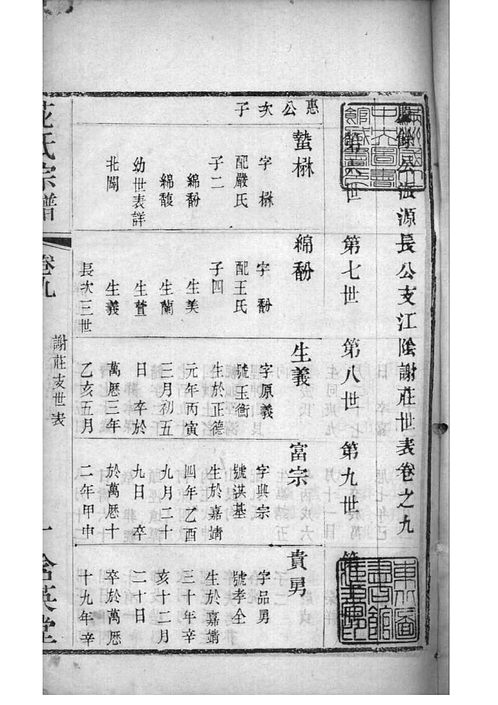 餘公派源長公支江陰謝莊世表卷之九
第六世 第七世 第八世 第九世 第
惠公次子
蟄楙
字楙
配嚴氏
子二
綿馚
綿馥
幼世表詳
北閘
綿馚
字馚
配王氏
子四
生美
生蘭
生萱
生義
長次三世
生義
字原義
號玉衡
生於正德
元年丙寅
三月初五
日 卒於
萬厯三年
乙亥五月
富宗
字興宗
號洪基
生於嘉靖
四年乙酉
九月二十
九日 卒
於萬厯十
二年甲申
貴男
字品男
號孝全
生於嘉靖
三十年辛
亥十二月
二十日
卒於萬厯
十九年辛
氏宗譜 卷九 謝莊支世表 一 含英堂